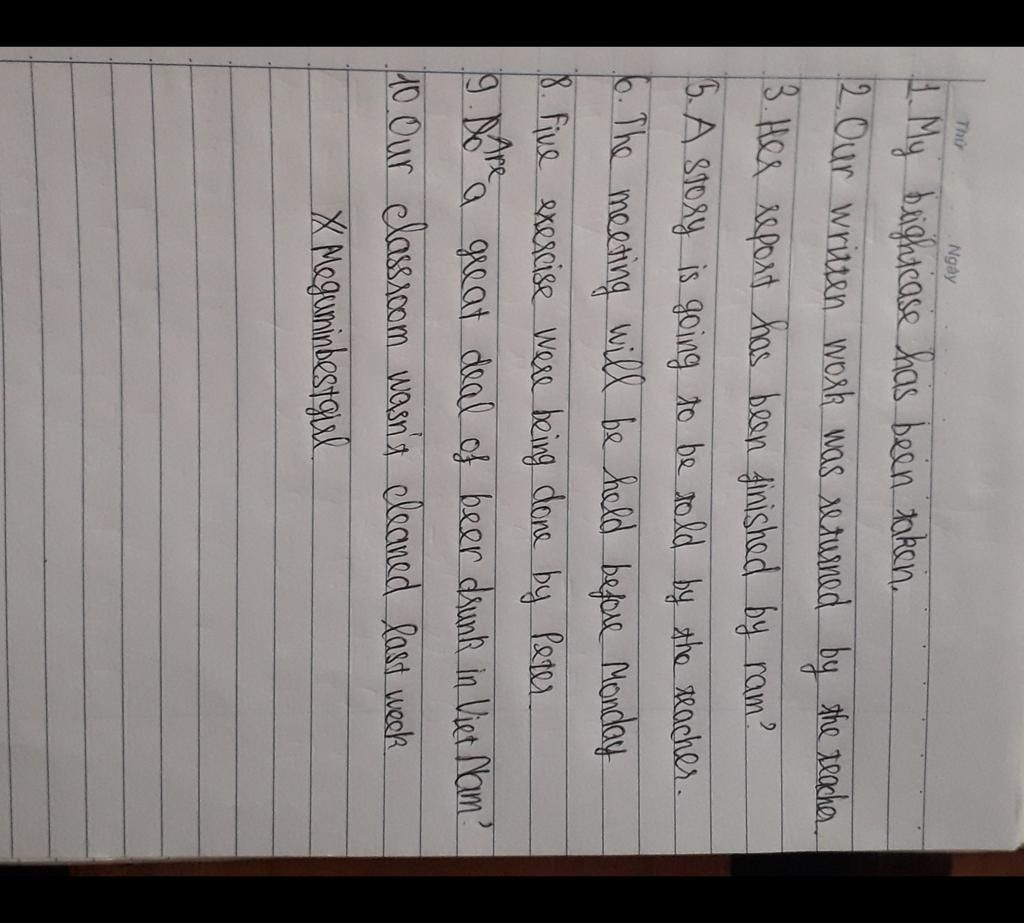 Thứ
Ngày
1. My brightcase has been taken.
2. Our written work was returned by the teacher.
3. Her report has been finished by ram?
5. A story is going to be told by the teacher.
6. The meeting will be held before Monday
8. Five exercise were being done by Peter.
9. Are a great deal of beer drunk in Viet Nam?
10. Our classroom wasn't cleaned last week
X Meguminbestgirl